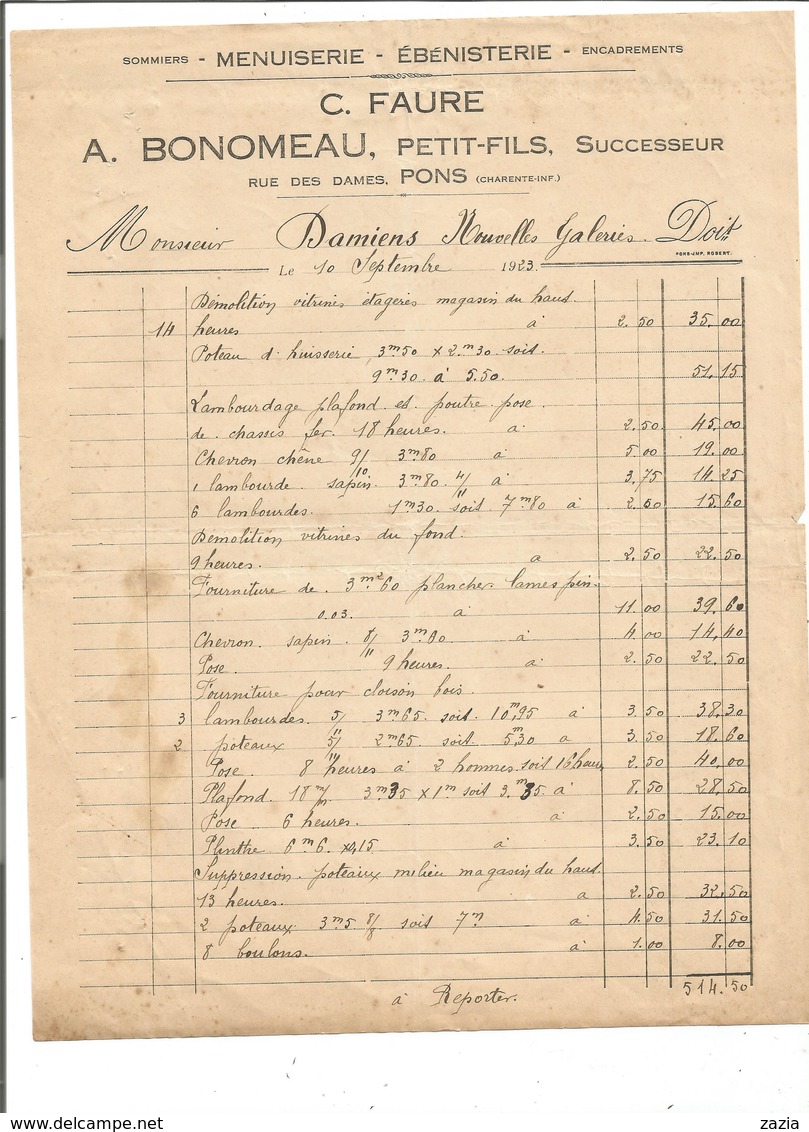 SOMMIERS - MENUISERIE - ÉBÉNISTERIE - ENCADREMENTS
C. FAURE
A. BONOMEAU, PETIT-FILS, SUCCESSEUR
RUE DES DAMES, PONS (CHARENTE-INF.)
Monsieur Damiens Nouvelles Galeries. Doit
PONS-IMP. ROBERT.
Le 10 Septembre 1923.
Démolition vitrines étagères magasin du haut.
14 heures à 2.50 35.00
Poteau d'huisserie 3m50 x 2m30 soit.
9m30 à 5.50. 51.15
Lambourdage plafond et poutre pose.
de chassis fer. 18 heures. à 2.50 45.00
Chevron chêne 9/10 3m80 à 5.00 19.00
1 lambourde sapin 3m80 4/11 à 3,75 14.25
6 lambourdes. 1m30 soit 7m80 à 2.00 15.60
Démolition vitrines du fond.
9 heures. a 2.50 22.50
Fourniture de 3m²60 plancher lames pin.
0.03. à 11.00 39.60
Chevron sapin 8/11 3m60 à 4.00 14.40
Pose. 9 heures. à 2.50 22.50
Fourniture pour cloison bois.
3 lambourdes 5/11 3m65 soit 10m,95 à 3.50 38.30
2 poteaux 5/11 2m65 soit 5m,30 a 3.50 18.60
Pose. 8 heures à 2 hommes soit 16 heures 2.50 40.00
Plafond. 18 m/m 3m35 x 1m soit 3m35 à 8.50 28.50
Pose 6 heures. à 2.50 15.00
Plinthe 6m6 x 0,15 à 3.50 23.10
Suppression poteaux milieu magasin du haut
13 heures. a 2.50 32.50
2 poteaux 3m5 8/8 soit 7m à 4.50 31.50
8 boulons. à 1.00 8.00
à Reporter. 514.50
zazia